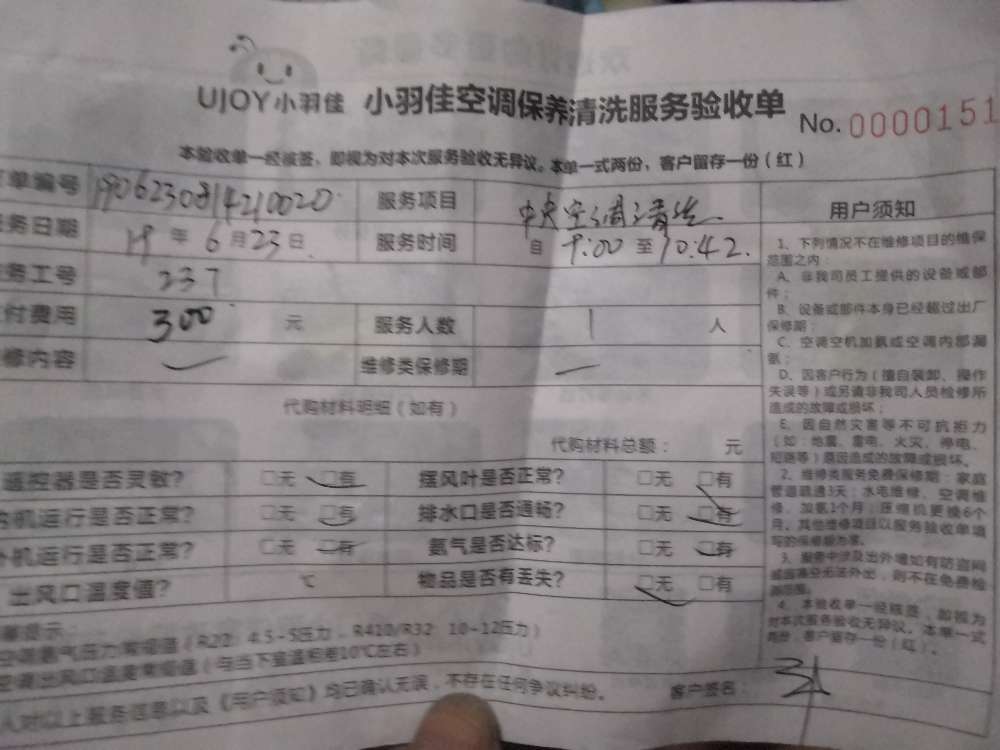 UJOY小羽佳 小羽佳空调保养清洗服务验收单 No. 0000151
本验收单一经被签，即视为对本次服务验收无异议。本单一式两份，客户留存一份（红）
单编号 1906230814210020 服务项目 中央空调清洗
务日期 19年6月23日 服务时间 自 9:00 至 10:42.
务工号 237
付费用 300 元 服务人数 1 人
修内容 — 维修类保修期 —
代购材料明细（如有）
代购材料总额： 元
遥控器是否灵敏？ □无 □有 摆风叶是否正常？ □无 □有
机运行是否正常？ □无 □有 排水口是否通畅？ □无 □有
外机运行是否正常？ □无 □有 氨气是否达标？ □无 □有
出风口温度值？ ℃ 物品是否有丢失？ □无 □有
提示：
空调氨气压力常规值（R22：4.5-5压力，R410/R32 10-12压力）
空调出风口温度常规值（与当下室温相差10℃左右）
人对以上服务信息以及《用户须知》均已确认无误，不存在任何争议纠纷。 客户签名：
用户须知
1、下列情况不在维修项目的维保
范围之内：
A、非我司员工提供的设备或部
件；
B、设备或部件本身已经超过出厂
保修期；
C、空调空机加氨或空调内部漏
氨；
D、因客户行为（擅自装卸、操作
失误等）或另请非我司人员检修所
造成的故障或损坏；
E、因自然灾害等不可抗拒力
（如：地震、雷电、火灾、停电、
短路等）原因造成的故障或损坏。
2、维修类服务免费保修期：家庭
管道疏通3天；水电维修、空调维
修、加氨1个月；压缩机更换6个
月。其他维修项目以服务验收单填
写的保修期为准。
3、服务中涉及出外墙如有防盗网
或高空无法外出，则不在免费检
4、本验收单一经核签，即视为
对本次服务验收无异议。本单一式
两份，客户留存一份（红）。